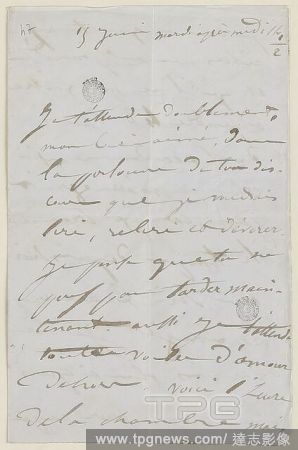 47
15 Juin mardi après midi 1h 1/2
Je t'attends doublement,
mon bien-aimé, dans
la personne de ton dis-
cours que je médis
lire, relire et dévorer.
Je pense que tu ne
peux pas tarder main-
tenant aussi je t'attends
toutes voiles d'amour
dehors. voici l'heure
de la chambre mai
TPG
www.tpgnews.com / 達志影像